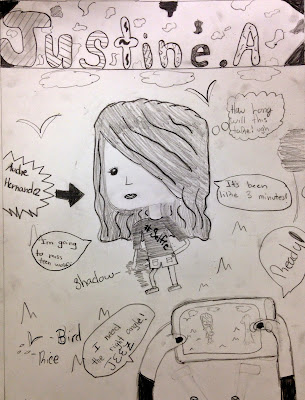 Justine.A
's
How long
will this
take? ugh
Andie
Hernandez
It's been
like 3 minutes!
I'm going
to miss
teen wolf!
#Selfie
Shadow
Ready!
I need
the right angle!
JEEZ
- Bird